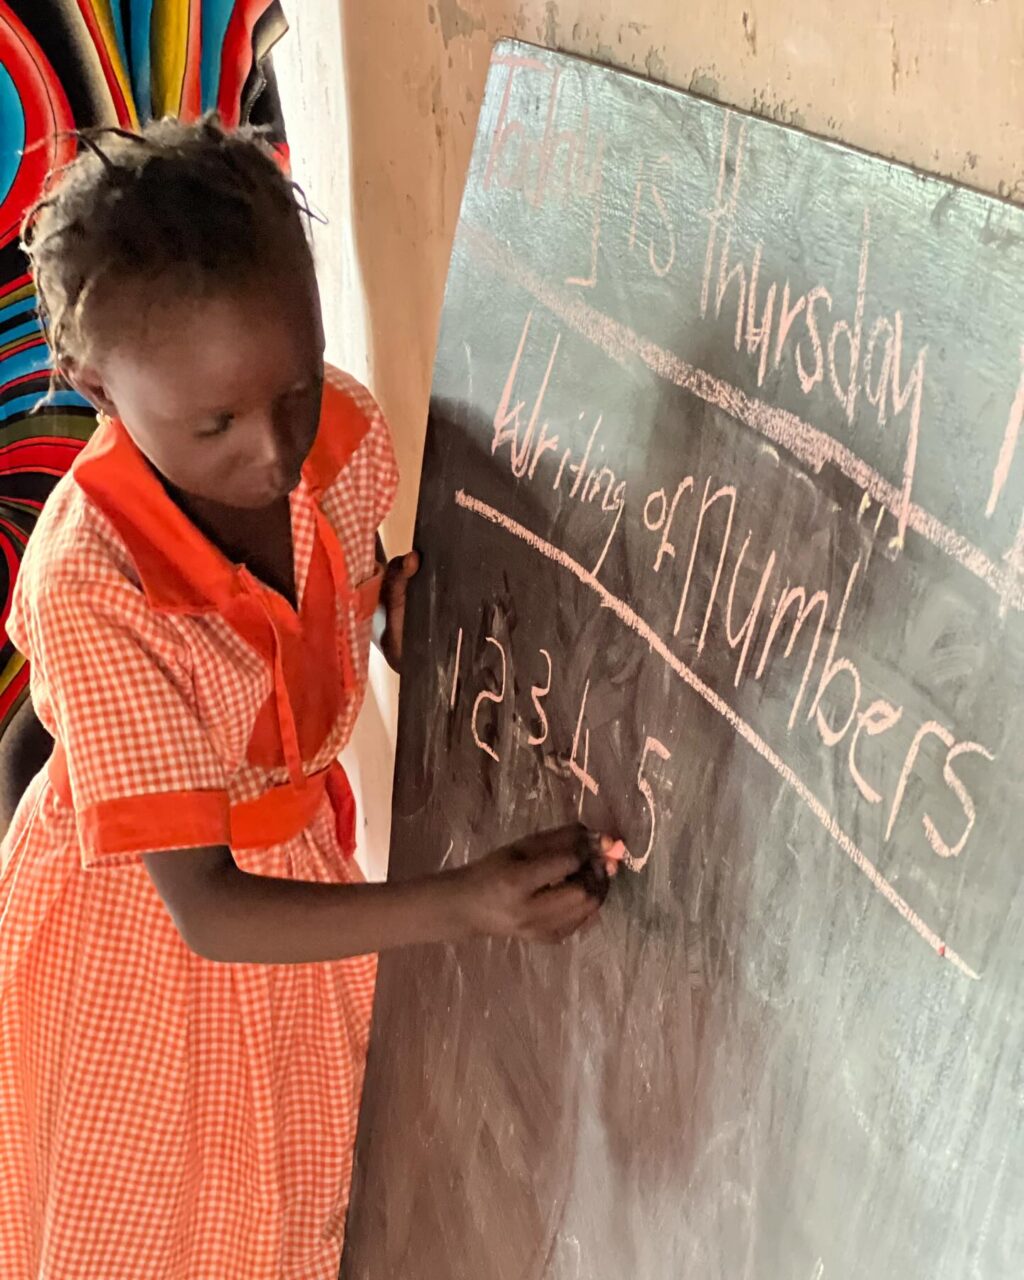 Today is Thursday
Writing of Numbers
1 2 3 4 5